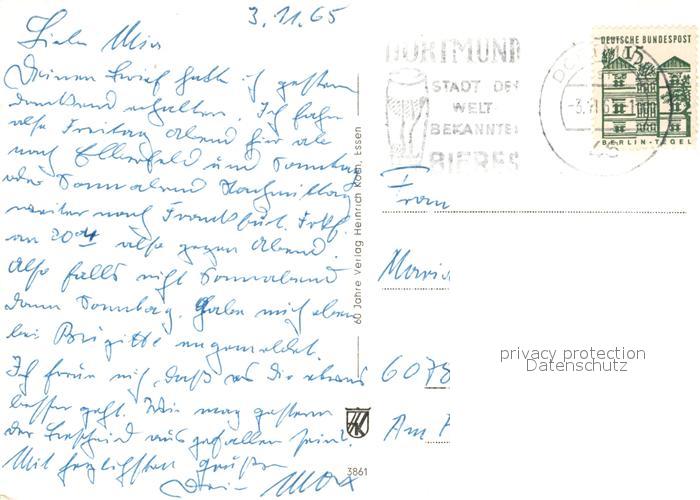 3.11.65
Liebe Mia
Deinen Brief habe ich gestern
dankend erhalten. Ich fahre
also Freitag Abend hier ab
nach Elberfeld und Sonntag
oder Sonnabend Nachmittag
weiter nach Frankfurt. Frkf.
an 20 also gegen Abend.
Also falls nicht Sonnabend
dann Sonntag. Habe mich eben
bei Brigitte angemeldet.
Ich freue mich, daß es Dir etwas
besser geht. Wie mag gestern
der Bescheid ausgefallen sein?
Mit herzlichsten Grüßen
Dein Max
60 Jahre Verlag Heinrich Koch, Essen
3861
DORTMUND
STADT DES
WELT
BEKANNTEN
BIERES
DEUTSCHE BUNDESPOST
15
BERLIN-TEGEL
Frau
Maria
6078
Am
privacy protection
Datenschutz